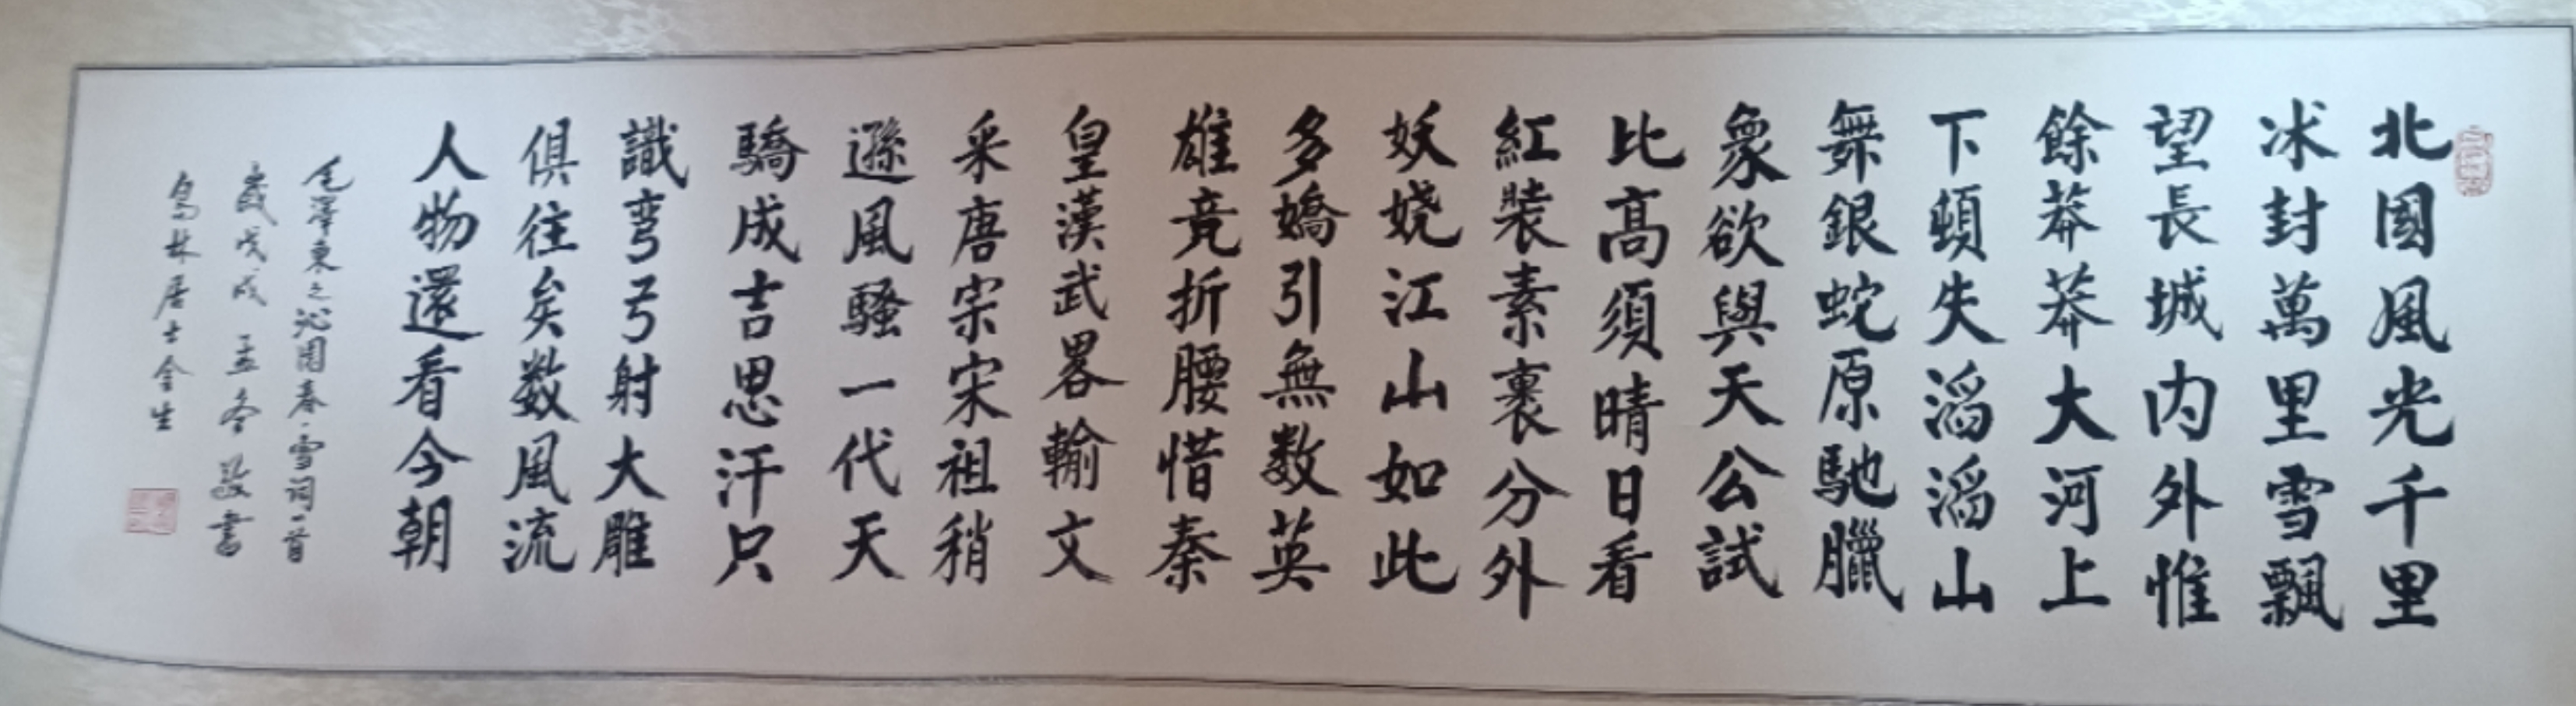 北國風光千里
冰封萬里雪飄
望長城内外惟
餘莽莽大河上
下頓失滔滔山
舞銀蛇原馳臘
象欲與天公試
比高須晴日看
紅裝素裹分外
妖娆江山如此
多嬌引無数英
雄竞折腰惜秦
皇漢武畧輸文
采唐宗宋祖稍
遜風騷一代天
驕成吉思汗只
識弯弓射大雕
俱往矣数風流
人物還看今朝
毛澤東之沁園春·雪詞一首
歲戊戌孟冬敬書
烏林居士金生